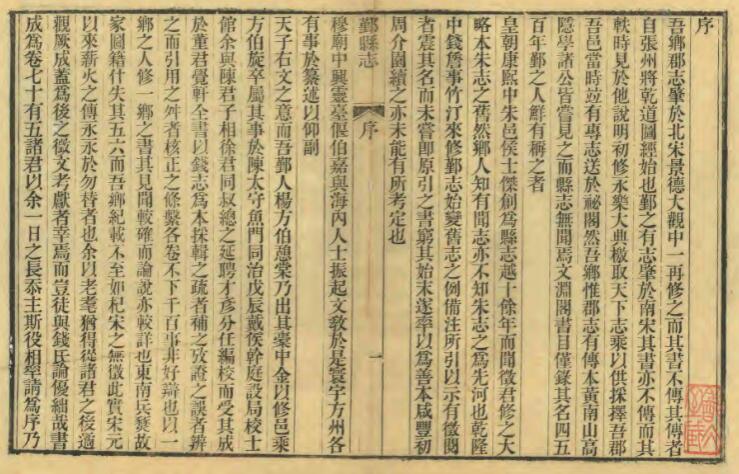 序
吾鄉郡志肇於北宋景德大觀中一再修之而其書不傳其傳者
自張州將乾道圖經始也鄞之有志肇於南宋其書亦不傳而其
軼時見於他說明初修永樂大典檄取天下志乘以供採擇吾郡
吾邑當時竝有專志送於祕閣然吾鄉惟郡志有傳本黃南山高
隱學諸公皆嘗見之而縣志無聞焉文淵閣書目僅錄其名四五
百年鄞之人鮮有稱之者
皇朝康熙中朱邑侯士傑創爲縣志越十餘年而聞徵君修之大
略本朱志之舊然鄉人知有聞志亦不知朱志之爲先河也乾隆
中錢詹事竹汀來修鄞志始變舊志之例備注所引以示有徵閱
者震其名而未嘗卽原引之書窮其始末遂率以爲善本咸豐初
周介園續之亦未能有所考定也
鄞縣志
序
一
穆廟中興靈臺偃伯嘉與海內人士振起文敎於是寰宇方州各
有事於纂述以仰副
天子右文之意而吾鄞人楊方伯憩棠乃出其橐中金以修邑乘
方伯旋卒屬其事於陳太守魚門同治戊辰戴侯幹庭設局校士
館余與陳君子相徐君同叔總之延聘才彥分任編校而受其成
於董君覺軒全書以錢志爲本採輯之疏者補之攷證之誤者辨
之而引用之舛者核正之條繫各卷不下千百事非好辯也以一
鄉之人修一鄉之書其見聞較確而論說亦較詳也東南兵燹故
家圖籍什失其五六而吾鄉紀載不至如杞宋之無徵此實宋元
以來薪火之傳永永於勿替者也余以老耄猶得從諸君之後適
觀厥成蓋爲後之徵文考獻者幸焉而豈徒與錢氏論優絀哉書
成爲卷七十有五諸君以余一日之長忝主斯役相率請爲序乃